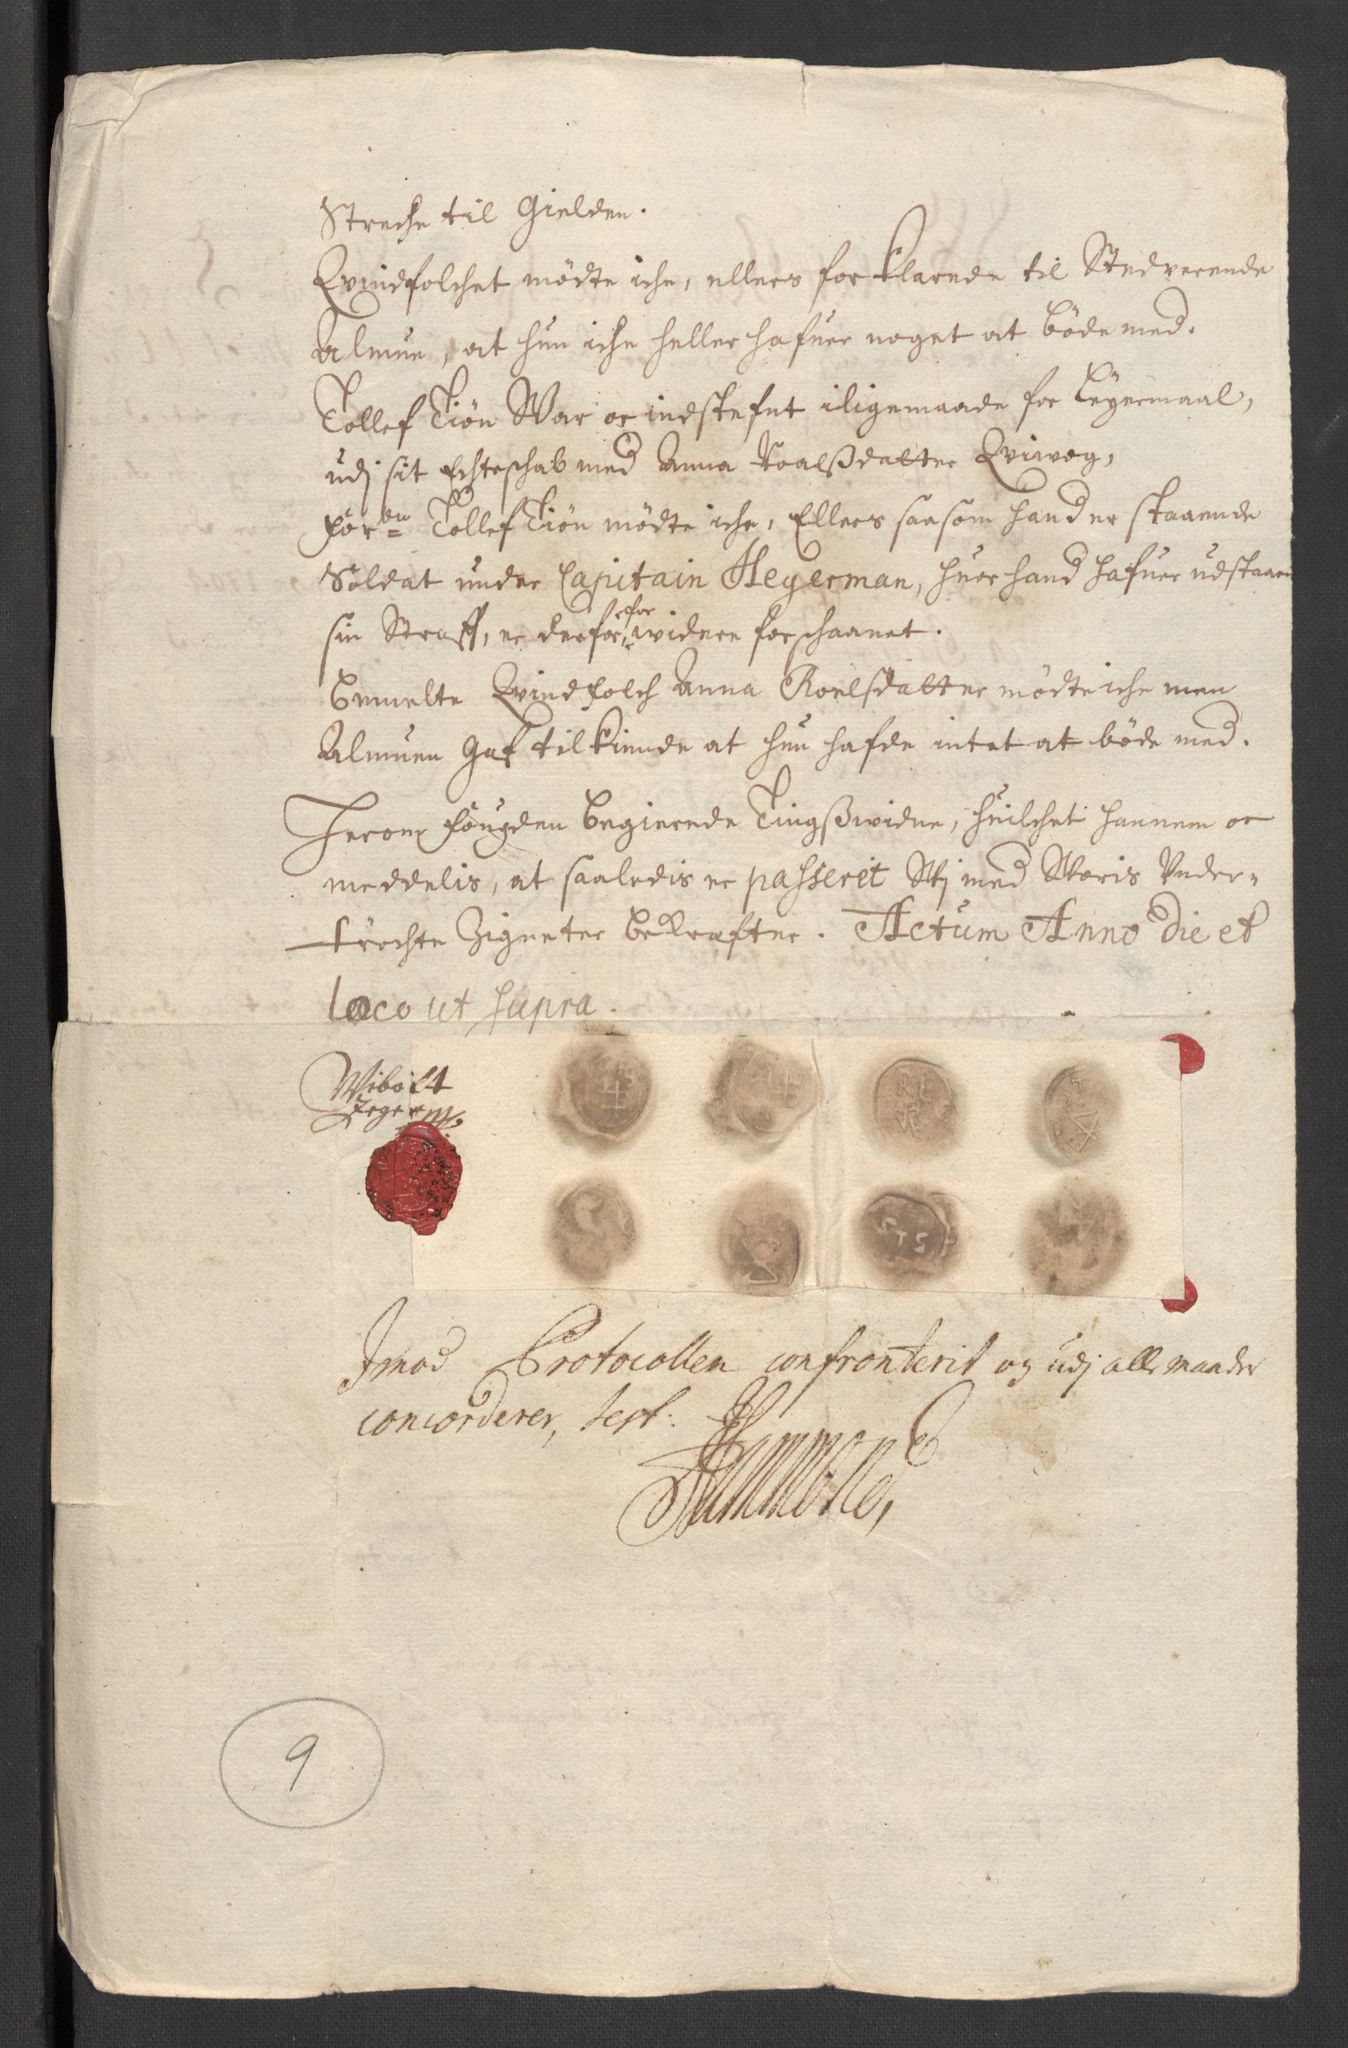 Streche til Gielden.
Qvindfolchet mødte iche, ellers forklarede til Stedverende
Almue, at hun iche heller hafuer noget at bøde med.
Tollef Tiøn War er indstefnt iligemaade for Leyermaal,
udj sit Echteschab med Anna Roalßdatter Qvivog,
för.n Tollef Tiøn mødte iche, Ellers saasom hand er staaende
Soldat under Capitain Hegerman, huor hand hafuer udstaaen
sin Straff, er derfor, for widere forschaanet.
Bemelte Qvindfolch Anna Roelsdatter mødte iche men
Almuen Gaf tilkiende at hun hafde intet at bøde med.
Herom fougden Begierede Tingßwidne, huilchet hannem er
meddelis, at saaledis er passerit Wj med Woris Under-
trøchte Zigneter Bekrefter. Actum Anno Die et
loco ut supra.
Wibolt
Jegerm.
RL
TS
Imod Protocollen confronterit og udj alle maader
concorderer, test:
9